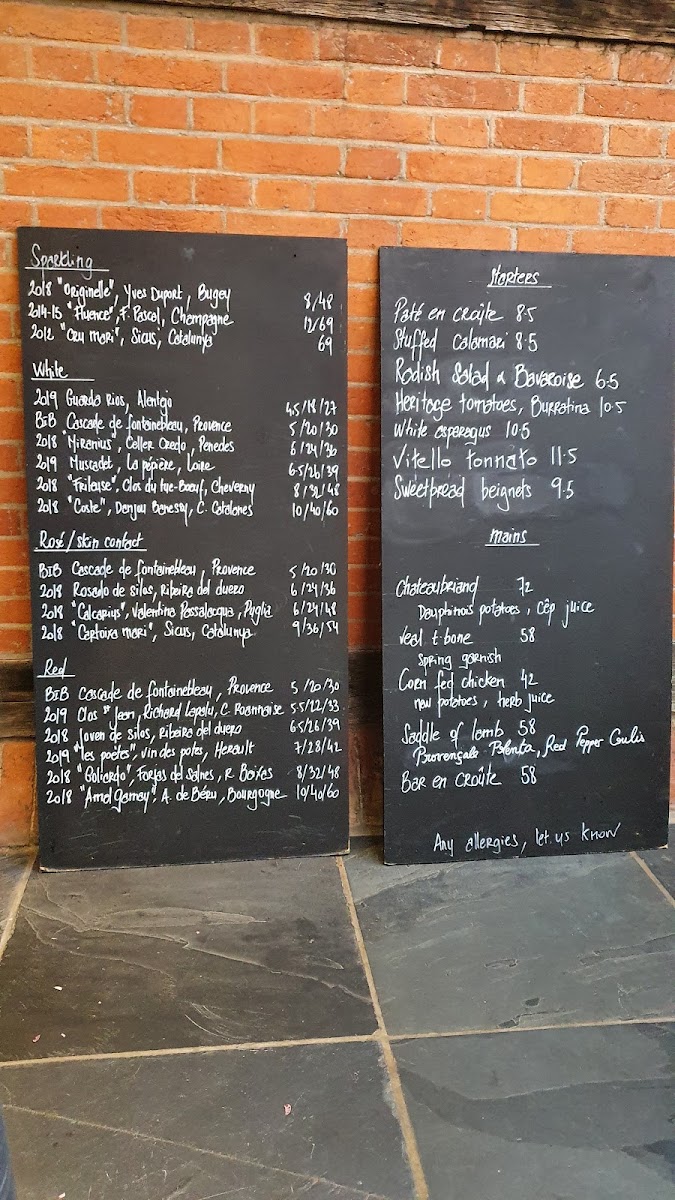 Sparkling
2018 "Originelle", Yves Duport, Bugey 8/48
2014-15 "Fluence", F. Pascal, Champagne 12/69
2012 "Cru mari", Sicus, Catalunya 69
White
2019 Guarda Rios, Alentejo 4.5/18/27
BIB Cascade de fontainebleau, Provence 5/20/30
2018 "Miranius", Celler Credo, Penedes 6/24/36
2019 Muscadet, La pépière, Loire 6.5/26/39
2018 "Frileuse", Clos du tue-Boeuf, Cheverny 8/32/48
2018 "Coste", Danjou Banessy, C. Catalanes 10/40/60
Rosé/skin contact
BIB Cascade de fontainebleau, Provence 5/20/30
2018 Rosado de silos, Ribeira del duero 6/24/36
2018 "Calcarius", Valentina Passalacqua, Puglia 6/24/48
2018 "Cartoixa mari", Sicus, Catalunya 9/36/54
Red
BIB Cascade de fontainebleau, Provence 5/20/30
2019 Clos St Jean, Richard C. Roannaise 5.5/22/33
2018 Joven de silos, Ribeira del duero 6.5/26/39
2019 "les poètes", vin des potes, Herault 7/28/42
2018 "Goliardo", Forjas del Salnes, R. Baixas 8/32/48
2018 "Amel Gamay", A. de Béru, Bourgogne 10/40/60
Starters
Paté en croûte 8.5
Stuffed calamari 8.5
Radish Salad & Bavaroise 6.5
Heritage tomatoes, Burratina 10.5
White asparagus 10.5
Vitello tonnato 11.5
Sweetbread beignets 9.5
Mains
Chateaubriand 72
Dauphinois potatoes, cêp juice
Veal t-bone 58
Spring garnish
Corn fed chicken 42
new potatoes, herb juice
Saddle of lamb 58
Provençale Polenta, Red Pepper Coulis
Bar en croûte 58
Any allergies, let us know